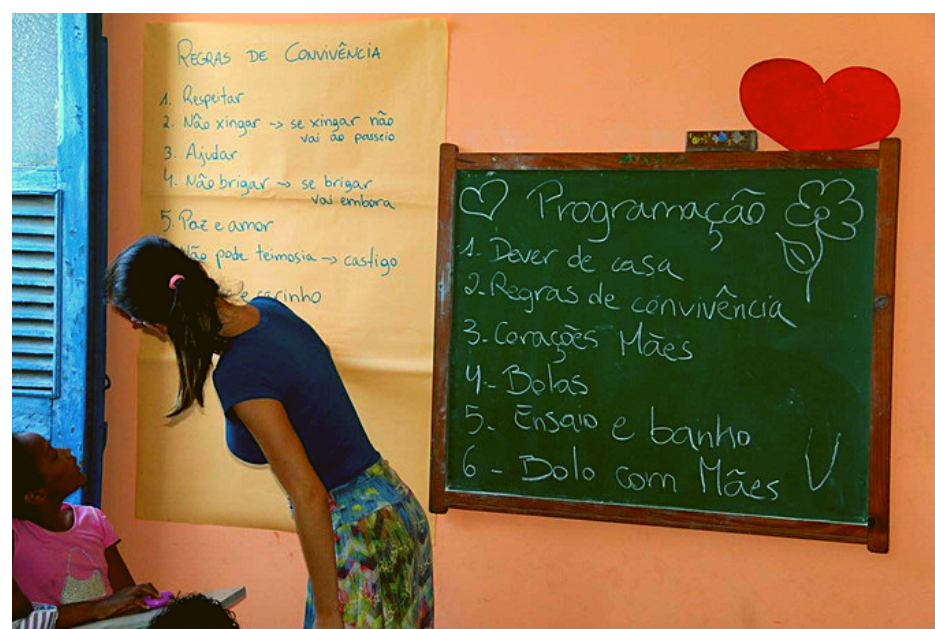 REGRAS DE CONVIVÊNCIA
1. Respeitar
2. Não xingar → se xingar não
vai ao passeio
3. Ajudar
4. Não brigar → se brigar
vai embora
5. Paz e amor
Não pode teimosia → castigo
e carinho
Programação
1. Dever de casa
2. Regras de convivência
3. Corações Mães
4 - Bolas
5. Ensaio e banho
6 - Bolo com Mães